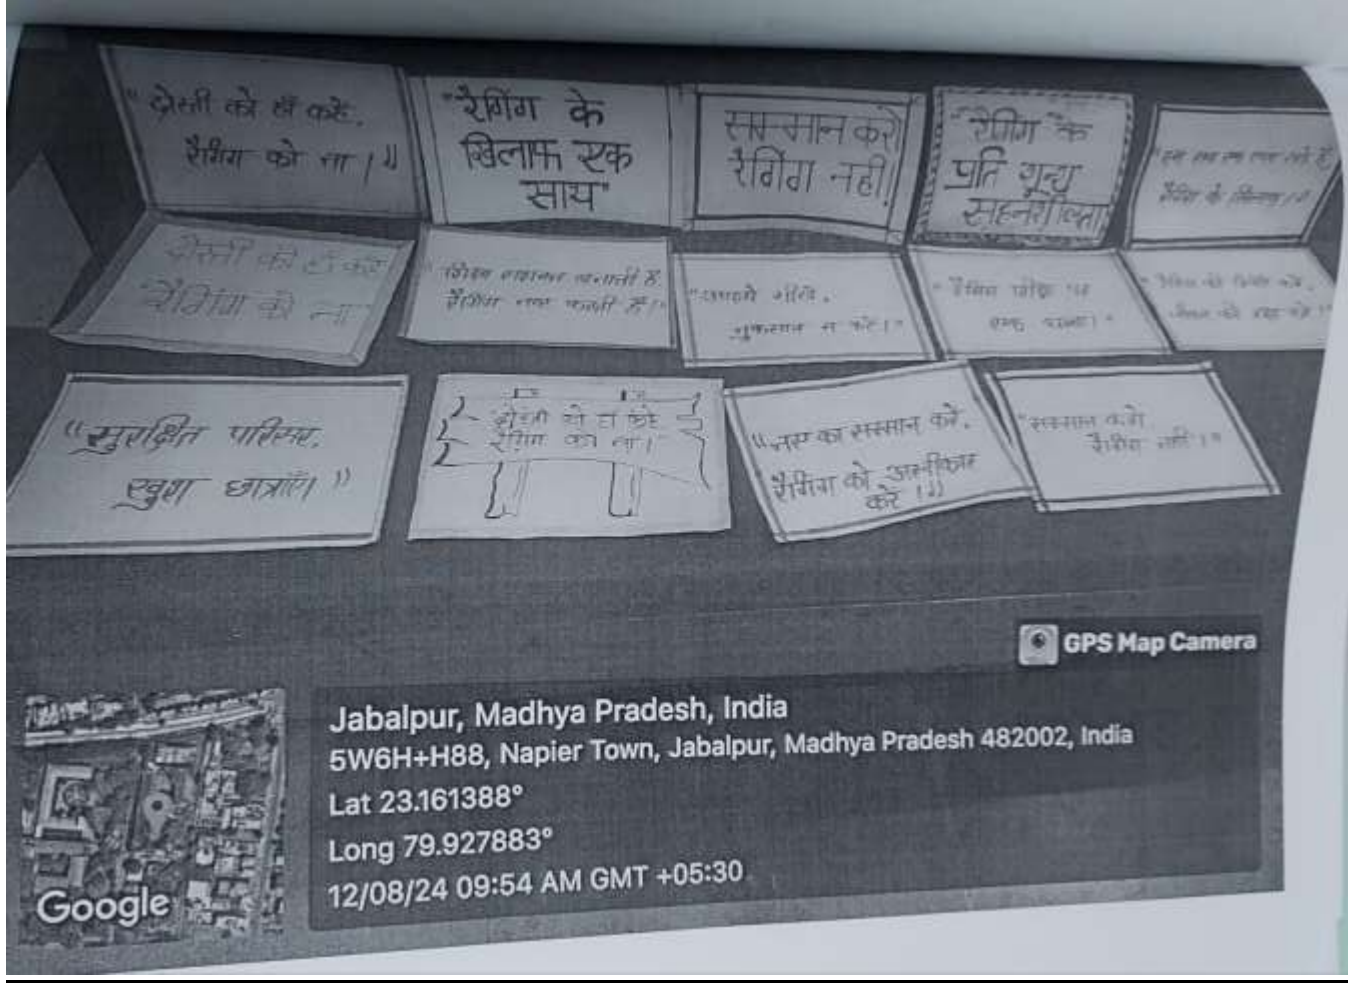 "दोस्ती को हाँ कहें,
रैगिंग को ना।"
"रैगिंग के
खिलाफ एक
साथ"
सम्मान करो
रैगिंग नहीं।
"रैगिंग" के
प्रति शून्य
सहनशीलता
रैगिंग के खिलाफ।"
दोस्ती को हाँ कहें
"रैगिंग को ना"
"शिक्षा सशक्त बनाती है,
रैगिंग नष्ट करती है।"
नुकसान न करें।"
"रैगिंग
"सुरक्षित परिसर,
खुश छात्राएँ।"
"दोस्ती को हाँ कहें
रैगिंग को ना।"
का सम्मान करें,
रैगिंग को अस्वीकार
करें।"
"सम्मान करो
रैगिंग नहीं।"
GPS Map Camera
Jabalpur, Madhya Pradesh, India
5W6H+H88, Napier Town, Jabalpur, Madhya Pradesh 482002, India
Lat 23.161388°
Long 79.927883°
12/08/24 09:54 AM GMT +05:30
Google